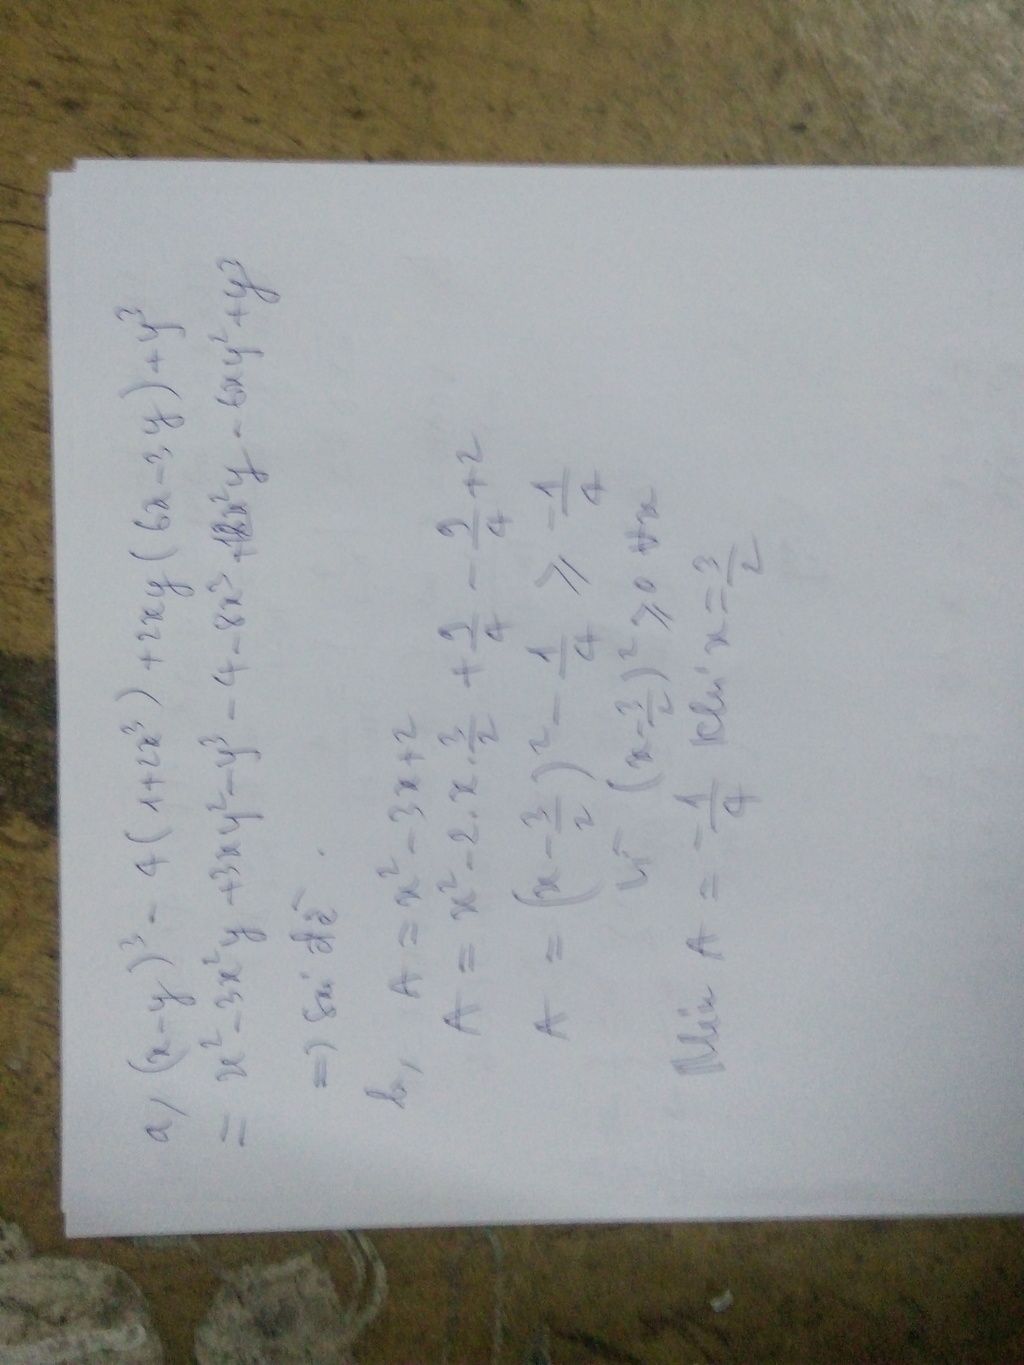 a, (x-y)³ - 4(1+2x³) + 2xy(6x-3y) + y³
= x² - 3x²y + 3xy² - y³ - 4 - 8x³ + 12x²y - 6xy² + y³
=> Sai đề.
b, A = x² - 3x + 2
A = x² - 2.x.3/2 + 9/4 - 9/4 + 2
A = (x - 3/2)² - 1/4 ≥ -1/4
Vì (x - 3/2)² ≥ 0 ∀x
Min A = -1/4 khi x = 3/2